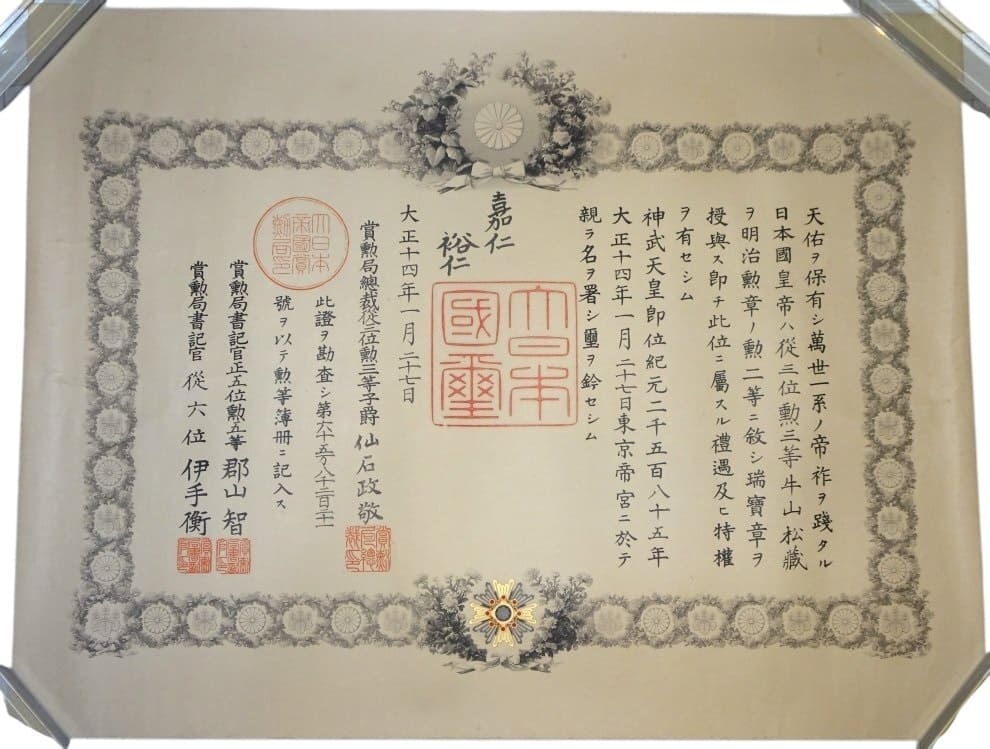 天佑ヲ保有シ萬世一系ノ帝祚ヲ踐タル
日本國皇帝ハ從三位勲三等牛山松藏
ヲ明治勲章ノ勲二等ニ敘シ瑞寶章ヲ
授與ス即チ此位ニ屬スル禮遇及ヒ特權
ヲ有セシム
神武天皇即位紀元二千五百八十五年
大正十四年一月二十七日東京帝宮ニ於テ
親ラ名ヲ署シ璽ヲ鈐セシム
嘉仁
裕仁
大日本國璽
大正十四年一月二十七日
賞勲局總裁從三位勲三等子爵仙石政敬
此證ヲ勘査シ第六十五万八千二百二十一
號ヲ以テ勲等簿册ニ記入ス
大日本帝國賞勲局印
賞勲局書記官正五位勲五等郡山智
賞勲局書記官從六位伊手衡